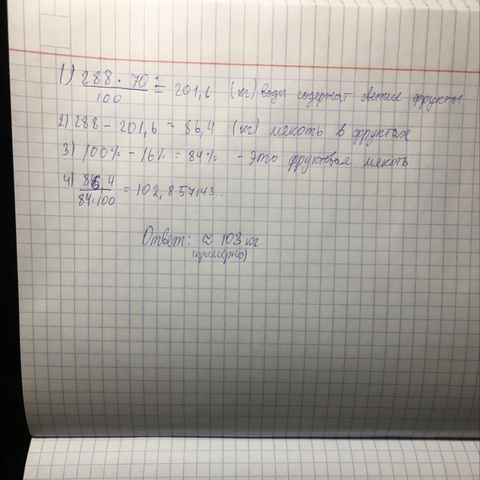 1) 288 · 70 / 100 = 201,6 (кг) воды содержат свежие фрукты
2) 288 - 201,6 = 86,4 (кг) мякоть в фруктах
3) 100% - 16% = 84% - это фруктовая мякоть
4) 86,4 / 84·100 = 102,857143..
Ответ: ≈ 103 кг.
(примерно)